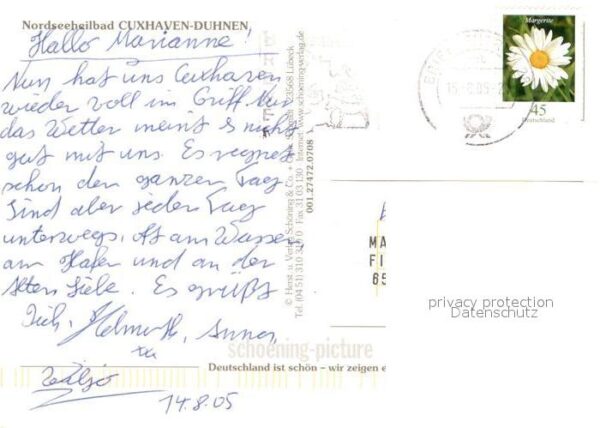 Nordseeheilbad CUXHAVEN-DUHNEN
Hallo Marianne!
Nun hat uns Cuxhaven
wieder voll im Griff. Nur
das Wetter meint es nicht
gut mit uns. Es regnet
schon den ganzen Tag
Sind aber jeden Tag
unterwegs. Ob am Wasser,
am Hafen und an der
Alten Liebe. Es grüßt
Dich, Helmuth, Anna,
14.8.05
© Herst. u. Verlag Schöning & Co. + 23568 Lübeck
Tel. (04 51) 310 31 03 130 · Internet: www.schoening-verlag.de
001.27472.0708
schoening-picture
Deutschland ist schön – wir zeigen e
Margerite
45
Deutschland
MA
FI
65
privacy protection
Datenschutz